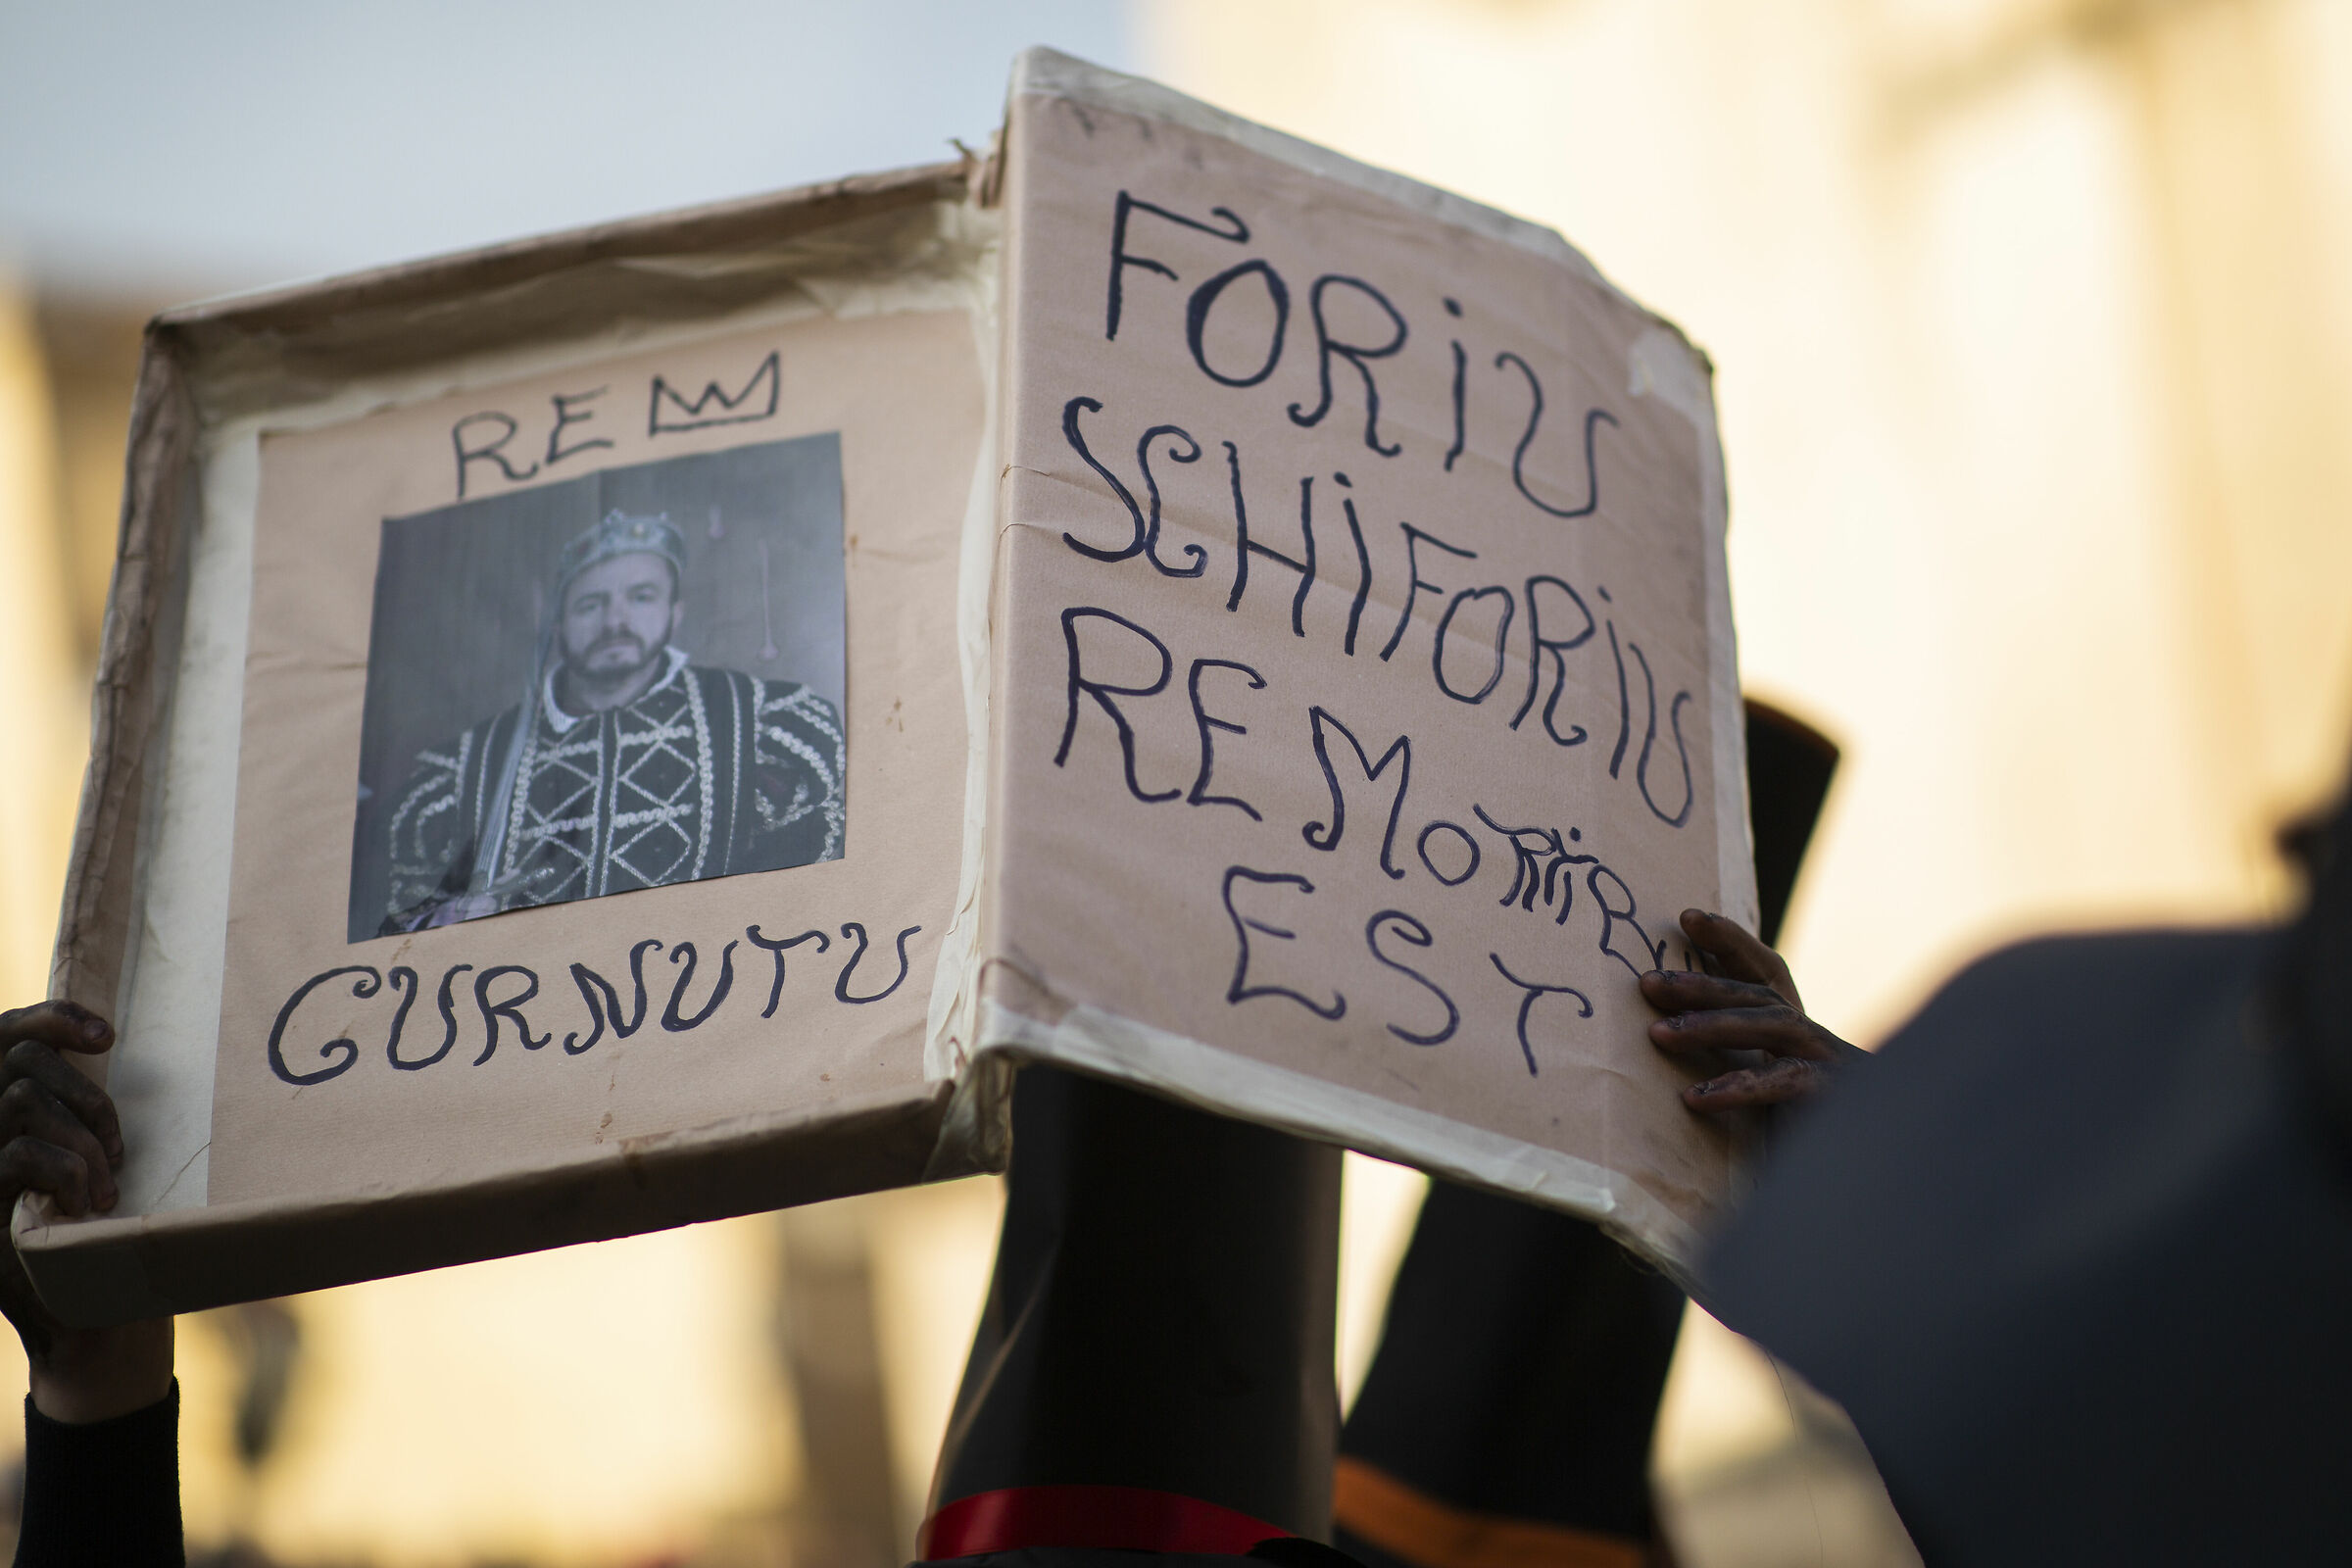 RE
CURNUTU
FORIU
SCHIFORIU
REMORTIB
EST